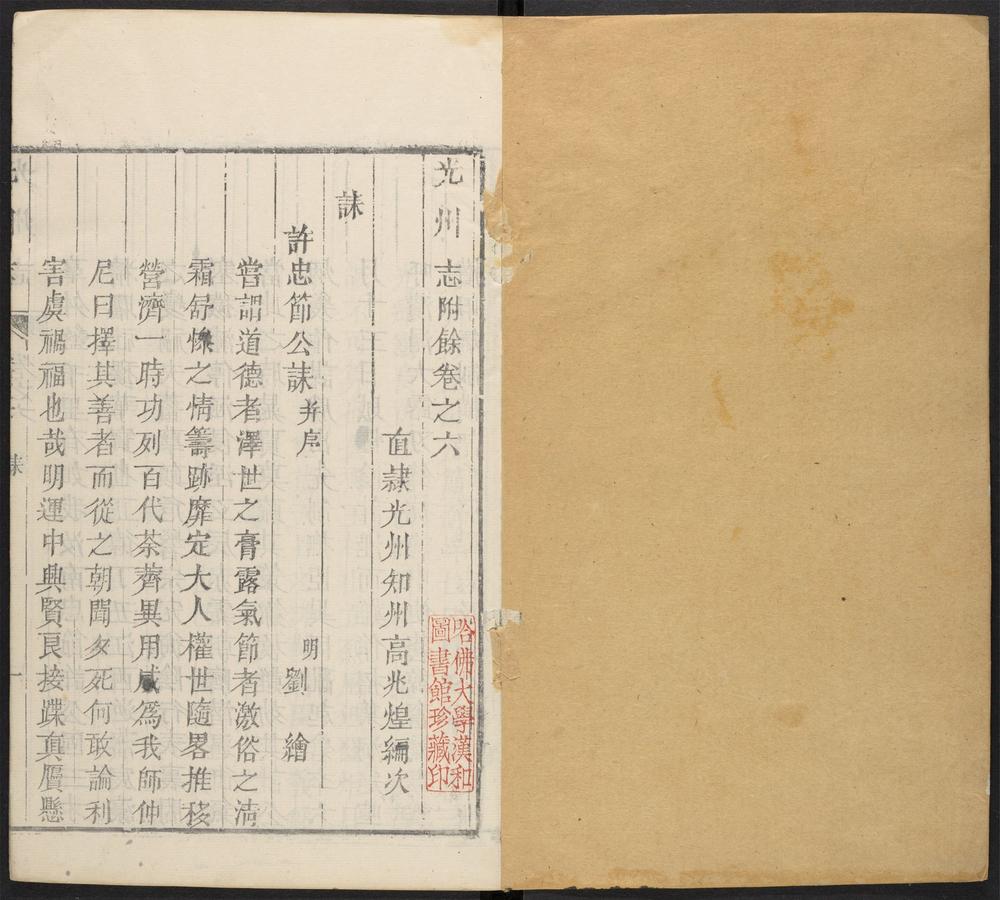 光州志附餘卷之六
直隸光州知州高兆煌編次
誄
許忠節公誄并序
明劉繪
嘗謂道德者澤世之膏露氣節者激俗之清
霜舒慘之情籌跡靡定大人權世隨畧推移
營濟一時功列百代荼薺異用咸爲我師仲
尼曰擇其善者而從之朝聞夕死何敢論利
害虞禍福也哉明運中興賢良接蹀真贋懸
誄
一
哈佛大學漢和
圖書館珍藏印